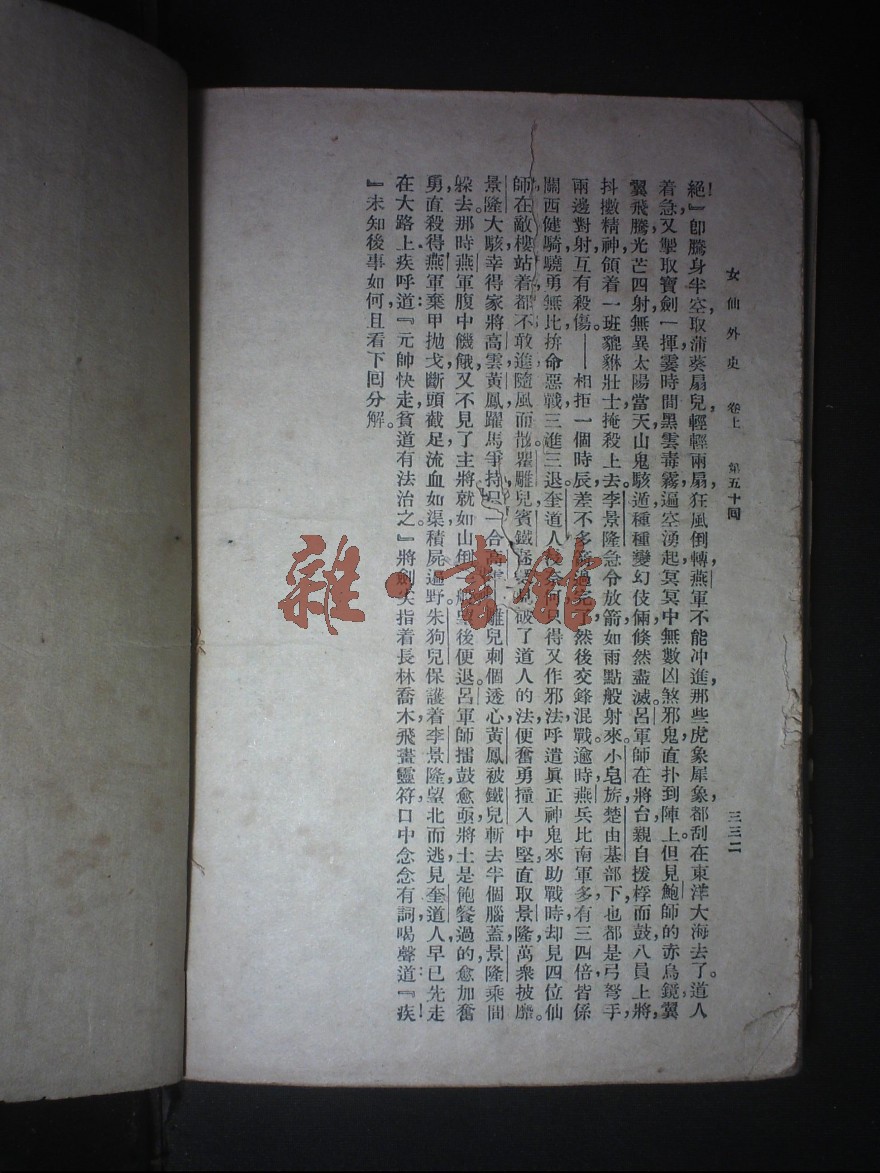 女仙外史 卷上 第五十回 三三二
絕！』卽騰身半空，取蒲葵扇兒，輕輕兩扇，狂風倒轉，燕軍不能冲進，那些虎象犀象，都刮在東洋大海去了。道人
着急，又掣取寶劍一揮，霎時間黑雲毒霧，逼空湧起，冥冥中無數凶煞邪鬼，直扑到陣上。但見鮑師的赤烏鏡，翼
翼飛騰，光芒四射，無異太陽當天，山鬼駭遁，種種變幻伎倆，倏然盡滅。呂軍師在將台，親自援桴而鼓，八員上將，
抖擻精神，領着一班貔貅壯士，掩殺上去。李景隆急令放箭如雨點般射來。小皂旂楚由基部下，也都是弓弩手，
兩邊對射，互有殺傷。——相拒一個時辰，差不多箭過完了，然後交鋒混戰。逾時，燕兵比南軍多有三四倍，皆係
關西健騎，驍勇無比，拚命惡戰，三進三退。奎道人 奈何，只得又作邪法，呼遣眞正神鬼來助戰時，却見四位仙
師在敵樓站着，都不敢進，隨風而散。瞿雕兒賓鐵 破了道人的法，便奮勇撞入中堅，直取景隆，萬衆披靡。
景隆大駭，幸得家將高雲黃鳳躍馬爭持，只一合，高 雕兒刺個透心，黃鳳被鐵兒斬去半個腦蓋，景隆乘間
躲去。那時燕軍腹中饑餓，又不見了主將，就如山倒 般望後便退。呂軍師擂鼓愈亟，將士是飽餐過的，愈加奮
勇，直殺得燕軍棄甲拋戈，斷頭截足，流血如渠，積屍遍野。朱狗兒保護着李景隆，望北而逃，見奎道人早已先走
在大路上，疾呼道：『元帥快走，貧道有法治之。』將劍尖指着長林喬木，飛畫靈符，口中念念有詞，喝聲道：『疾！
』未知後事如何，且看下回分解。
雜·書館